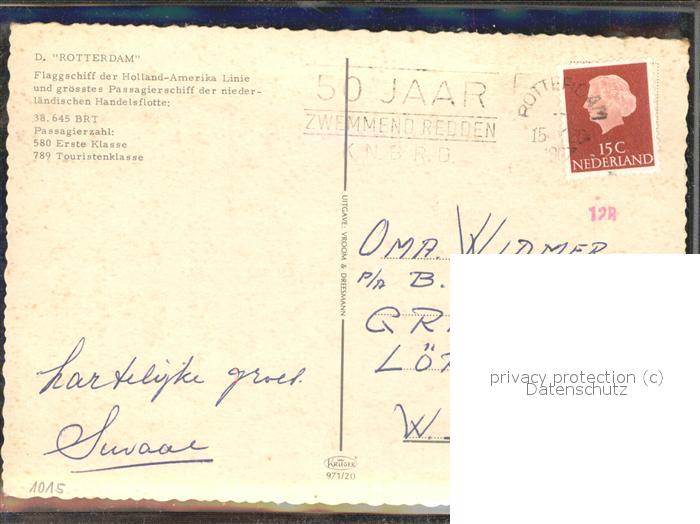 D. "ROTTERDAM"
Flaggschiff der Holland-Amerika Linie
und grösstes Passagierschiff der nieder-
ländischen Handelsflotte:
38.645 BRT
Passagierzahl:
580 Erste Klasse
789 Touristenklasse
50 JAAR
ZWEMMEND REDDEN
K.N.B.R.D.
ROTTERDAM
15
15 C
NEDERLAND
12R
UITGAVE: VROOM & DREESMANN
OMA WIDMER
P/A B.
LÖ
W.
hartelijke groet.
KRÜGER
971/20
1015
privacy protection (c)
Datenschutz